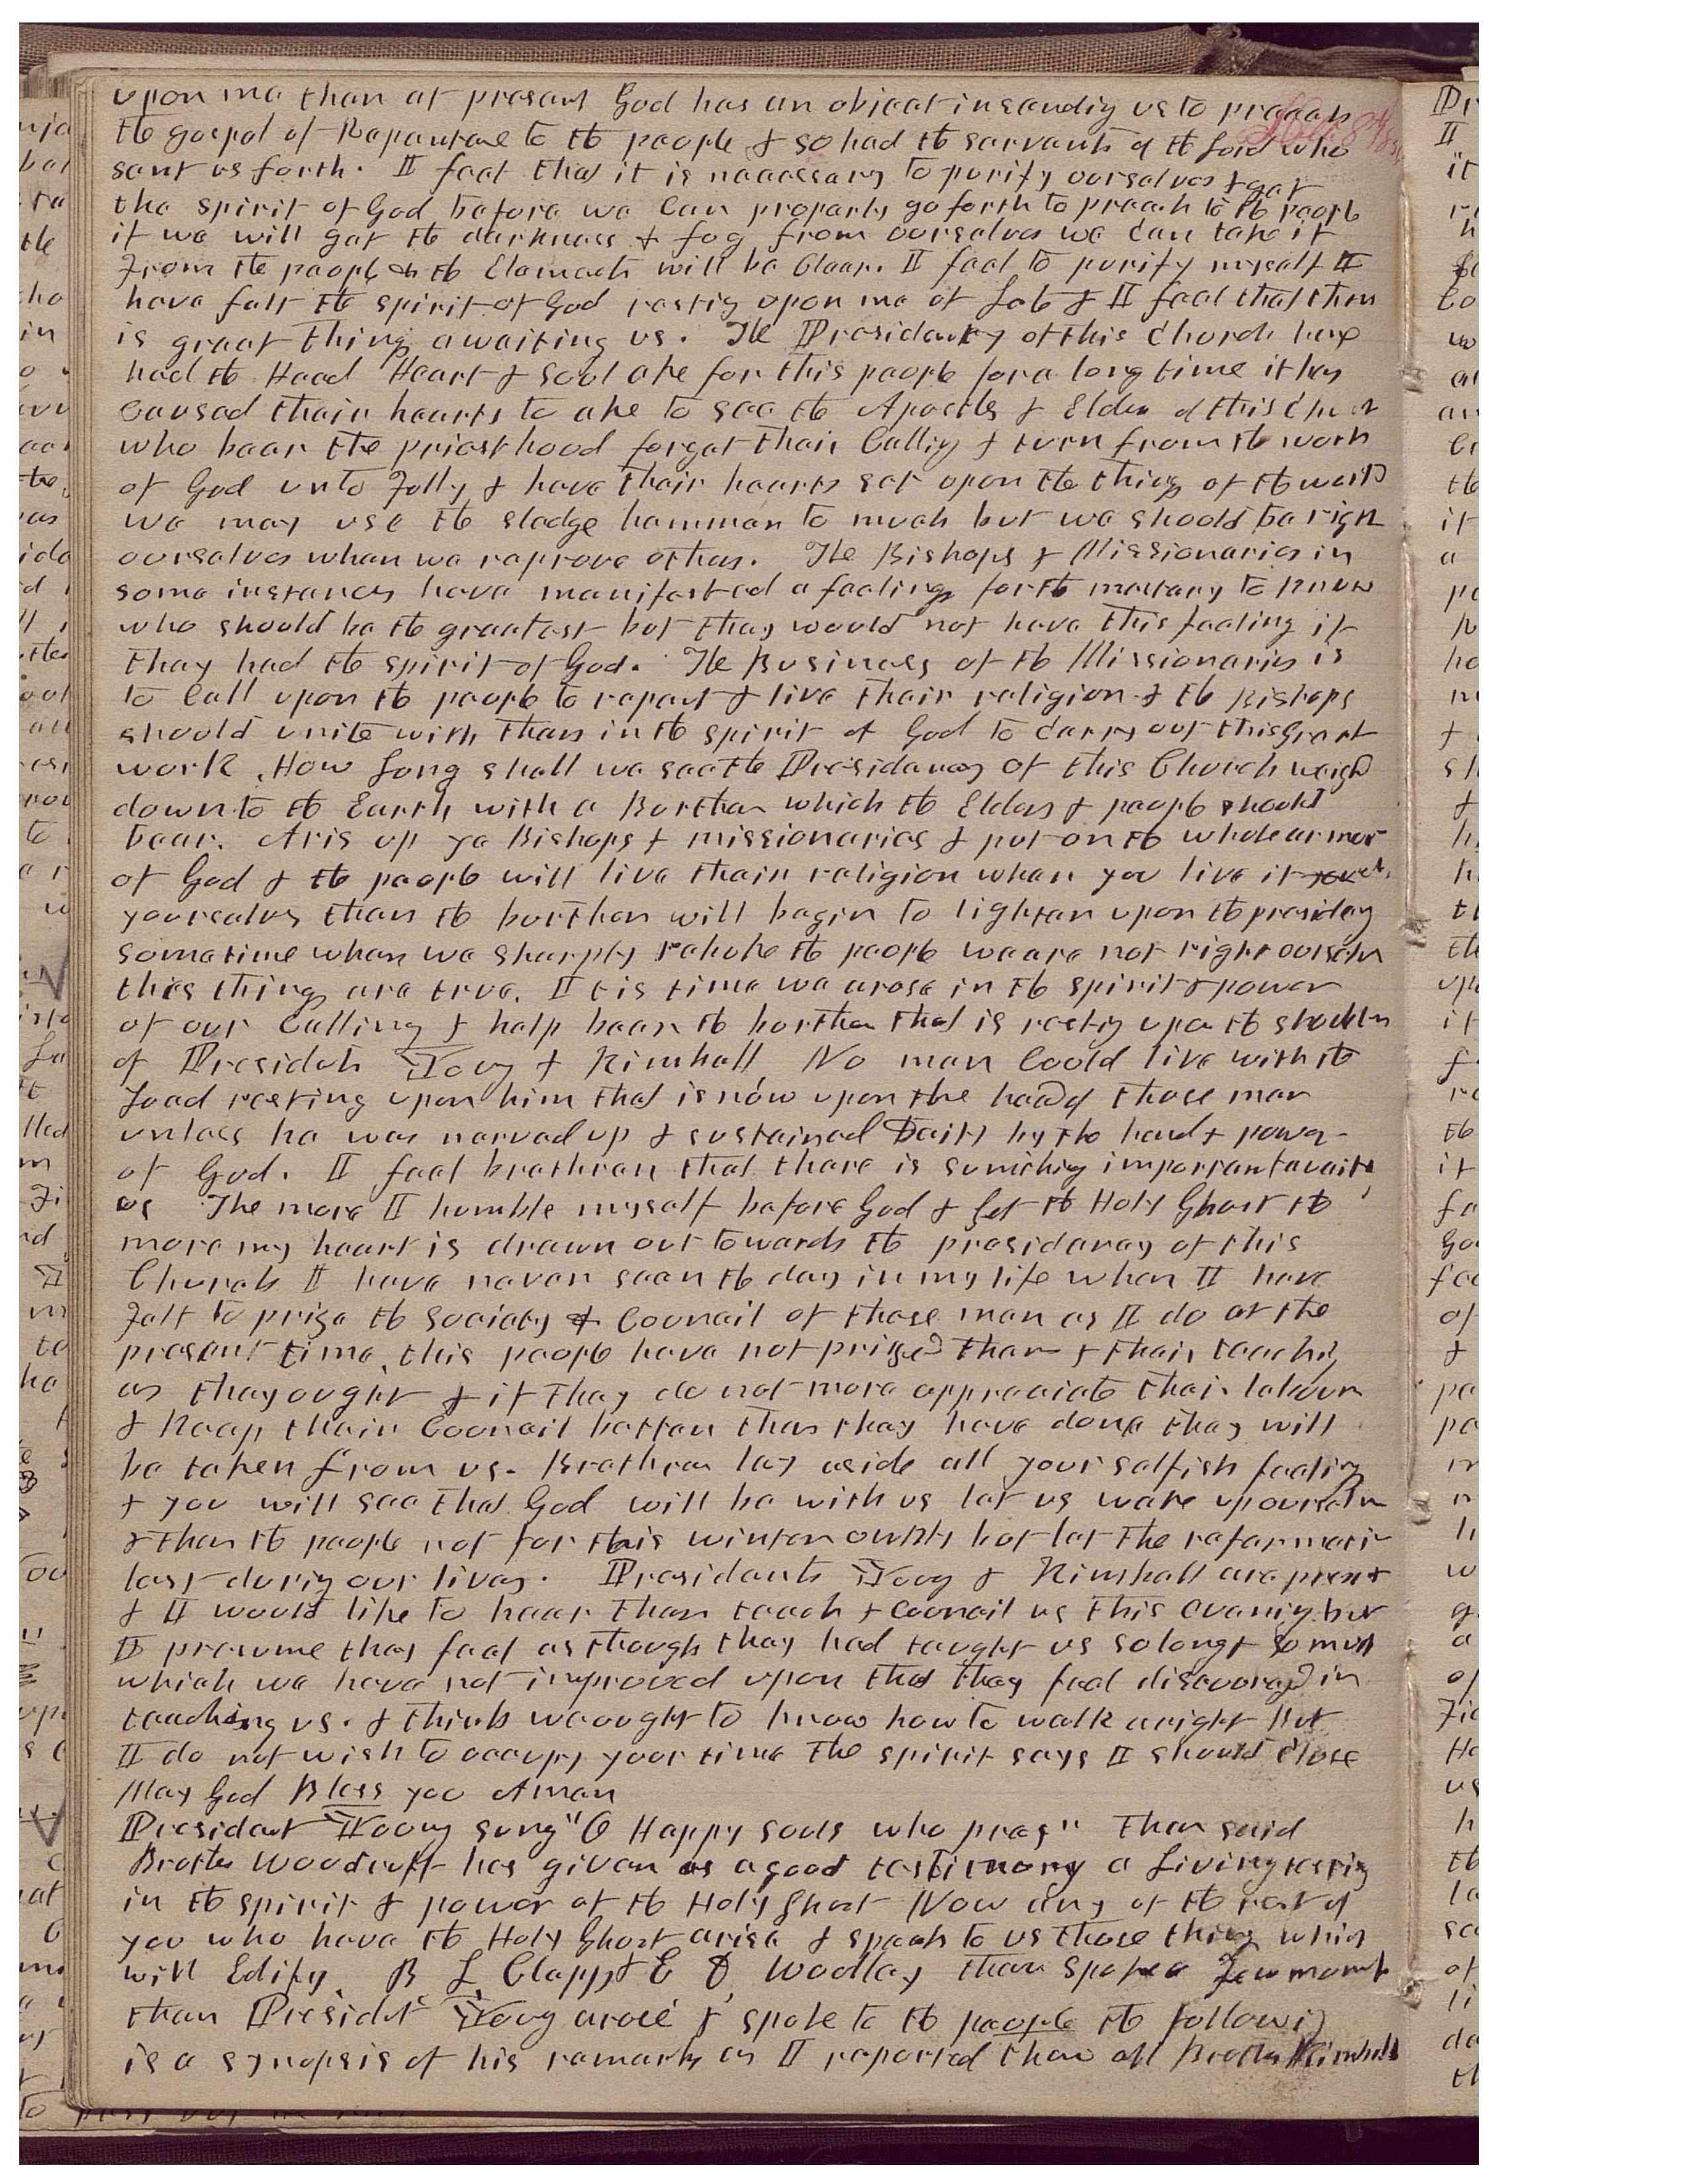 upon me than at present God has an object in sending us to preach
the gospel of Repentance to the people & so had the servants of the Lord who
sent us forth. I feel that it is nacessary to purify ourselves & get
the spirit of God before we Can properly go forth to preach to the people
if we will get the darkness & fog from ourselves we can take it
From the people & the Elements will be Clear. I feel to purify myself I
have felt the spirit of God resting upon me of Late & I feel that there
is great things awaiting us. The Presidency of this Church have
had the Head Heart & Soul ake for this people for a long time it has
Caused their hearts to ake to see the Apostles & Elders of this Church
who bear the priesthood forget their Calling & turn from the work
of God unto Folly & have their hearts set upon the things of the world
we may use the sledge hammer to much but we should be right
ourselves when we reprove others. The Bishops & Missionaries in
some instances have manifested a feeling for the mastery to know
who should be the greatest but they would not have this feeling if
they had the spirit of God. The Business of the Missionaries is
to Call upon the people to repent & live their religion & the Bishops
should unite with them in the spirit of God to Carry out this great
work. How Long shall we see the Presidency of this Church weighd
down to the Earth with a Burthen which the Elders & people should
bear. Aris up ye Bishops & missionaries & put on the whole armor
of God & the people will live their religion when you live it
yourselves then the burthen will begin to lighten upon the presidency
sometime when we sharply rebuke the people we are not right ourselves
thies things are true. It is time we arose in the spirit & power
of our Calling & help bear the burthen that is resting upon the shoulders
of Presidents Young & Kimball No man Could live with the
Load resting upon him that is now upon the head of those men
unless he was nerved up & sustained Daily by the hand & power
of God. I feel brethren that there is sumthing important awaits
us The more I humble myself before God & get the Holy Ghost the
more my heart is drawn out towards the presidency of this
Church I have never seen the day in my life when I have
Felt to prize the Society & Council of those men as I do at the
present time, this people have not prized them & their teachings
as they ought & if they do not more appreciate their labours
& Keep their Council better than they have done they will
be taken from us. Brethren lay aside all your selfish feelings
& you will see that God will be with us let us wake up ourselves
& then the people not for this winter ownly but let the reformation
last during our lives. Presidents Young & Kimball are present
& I would like to hear them teach & Council us this evening but
I presume they feel as though they had taught us so long & so much
which we have not improved upon that they feel discouraged in
teaching us. & think we ought to know how to walk aright But
I do not wish to occupy your time the spirit says I should close
May God Bless you Amen
President Young sung "O Happy Souls who pray" Then said
Brother Woodruff has given us a good testimony a Living testimony
in the spirit & power of the Holy Ghost Now any of the rest of
you who have the Holy Ghost arise & speak to us those things which
will Edify. B L Clapp & E D Woolley then spoke a Few moments
then President Young arose & spoke to the people the following
is a synopsis of his remarks as I reported them all Brother Kimball